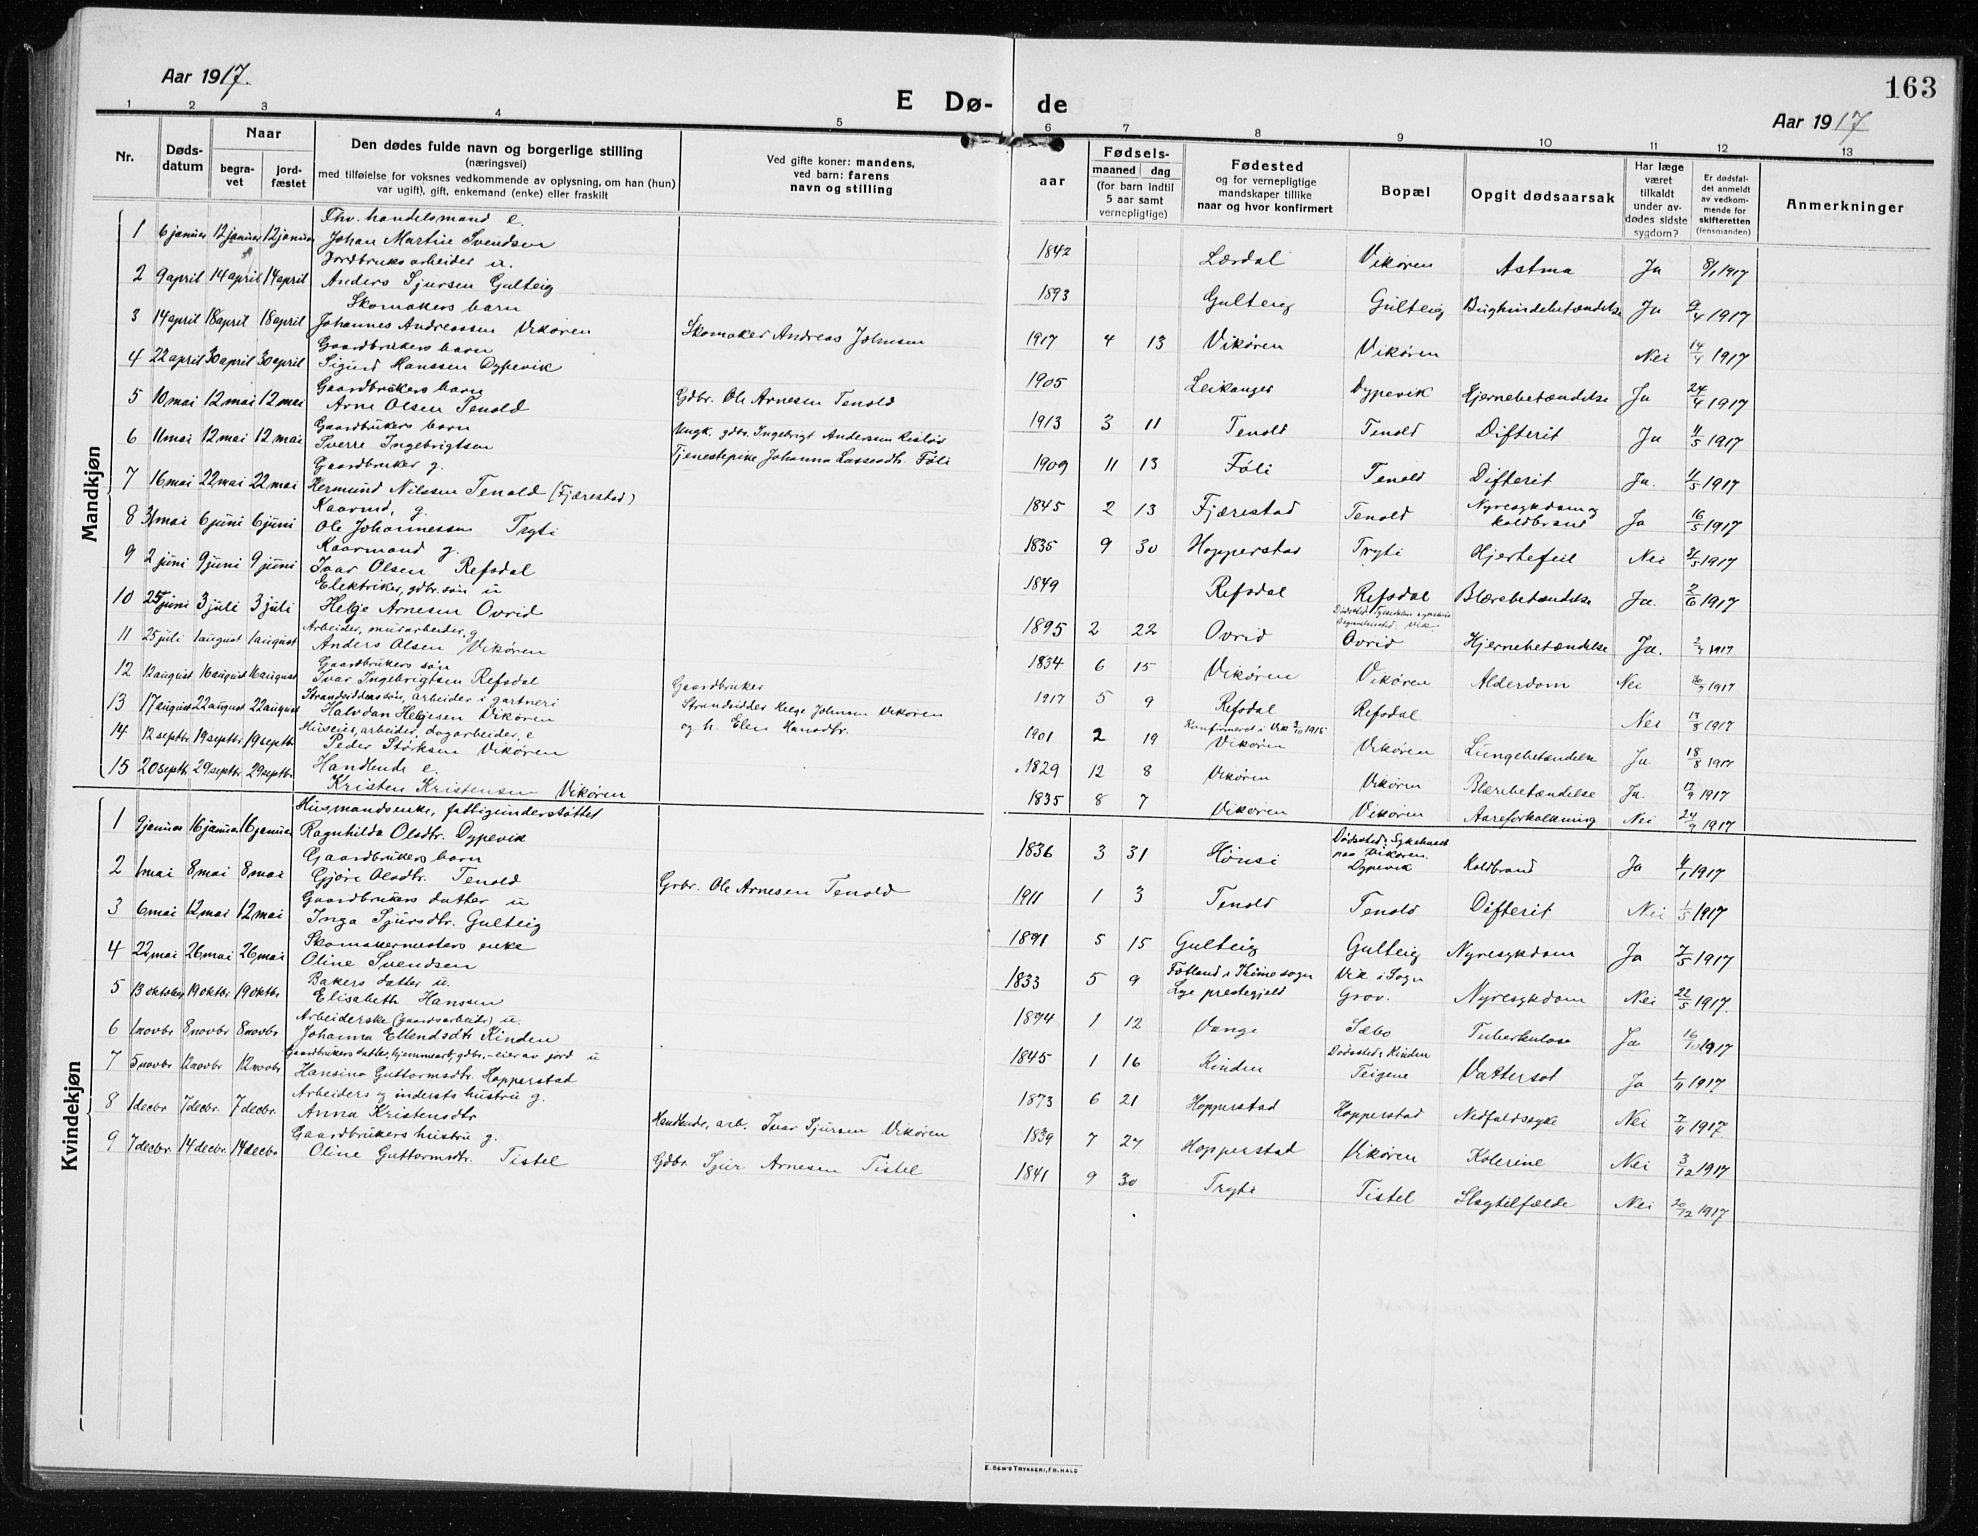 Aar 1917.
E Dø-
de
163
Aar 1917
1 2 3 4 5 6 7 8 9 10 11 12 13
Nr.
Døds-
datum
Naar
begra-
vet
jord-
fæstet
Den dødes fulde navn og borgerlige stilling
(næringsvei)
med tilføielse for voksnes vedkommende av oplysning, om han (hun)
var ugift), gift, enkemand (enke) eller fraskilt
Ved gifte koner: mandens,
ved barn: farens
navn og stilling
aar
Fødsels-
maaned dag
(for barn indtil
5 aar samt
vernepligtige)
Fødested
og for vernepligtige
mandskaper tillike
naar og hvor konfirmert
Bopæl
Opgit dødsaarsak
Har læge
været
tilkaldt
under av-
dødes sidste
sygdom?
Er dødsfal-
det anmeldt
av vedkom-
mende for
skifteretten
(lensmanden)
Anmerkninger
Mandkjøn
Fhv. handelsmand e.
1 6 januar 12 januar 12 januar Johan Martin Svendsen 1842 Lærdal Vikøren Astma Ja 8/1 1917
Jordbruksarbeider u.
2 9 april 14 april 14 april Anders Sjursen Gulteig 1893 Gulteig Gulteig Bughindebetændelse Ja 9/4 1917
Skomakers barn
3 14 april 18 april 18 april Johannes Andreassen Vikøren Skomaker Andreas Johnsen 1917 4 13 Vikøren Vikøren Nei 14/4 1917
Gaardbrukers barn
4 22 april 30 april 30 april Sigurd Hanssen Dypevik 1905 Leikanger Dypevik Hjernebetændelse Ja 24/4 1917
Gaardbrukers barn
5 10 mai 12 mai 12 mai Arne Olsen Tenold Gdbr. Ole Arnesen Tenold 1913 3 11 Tenold Tenold Difterit Ja 11/5 1917
Gaardbrukers barn Ungk. gdbr. Ingebrigt Anderssen
6 11 mai 12 mai 12 mai Sverre Ingebrigtsen Tjenestepike Johanna Lassesdtr. Føli 1909 11 13 Føli Tenold Difterit Ja. 11/5 1917
Gaardbruker g.
7 16 mai 22 mai 22 mai Hermund Nilssen Tenold (Fjærestad) 1845 2 13 Fjærestad Tenold Nyresykdom og koldbrand Ja 16/5 1917
Kaarmd, g.
8 31 mai 6 juni 6 juni Ole Johannessen Tryti 1835 9 30 Hopperstad Tryti Hjertefeil Nei 31/5 1917
Kaarmand g.
9 2 juni 9 juni 9 juni Ivar Olsen Refsdal 1849 Refsdal Refsdal Blærebetændelse Ja. 2/6 1917
Elektriker, gdbr. søn u
10 25 juni 3 juli 3 juli Helge Arnesen Ovrid 1895 2 22 Ovrid Ovrid Hjernebetændelse Ja. 2/7 1917
Arbeider, murarbeider, g
11 25 juli 1 august 1 august Anders Olsen Vikøren 1834 6 15 Vikøren Vikøren Alderdom Nei 1917
Gaardbrukers søn Gaardbruker
12 12 august 16 august 16 august Ivar Ingebrigtsen Refsdal 1917 5 9 Refsdal Refsdal Nei 13/8 1917
Strandsiddersøn, arbeider i gartneri Strandsidder Helge Johnsen Vikøren
13 17 august 22 august 22 august Halvdan Helgesen Vikøren og h. Elen Hansdtr. 1901 2 19 Konfirmeret i Vik 1915 Vikøren Vikøren Lungebetændelse Ja 18/8 1917
Huseier, arbeider, dagarbeider, e
14 12 septbr 19 septbr 19 septbr Peder Størksen Vikøren 1829 12 8 Vikøren Vikøren Blærebetændelse Ja. 12/9 1917
Handlende e.
15 20 septbr 29 septbr 29 septbr Kristen Kristensen Vikøren 1835 8 7 Vikøren Vikøren Aareforkalkning Nei 24/9 1917
Kvindekjøn
Husmandsenke, fattigunderstøttet
1 9 januar 16 januar 16 januar Ragnhilda Olsdtr. Dypevik 1836 3 31 Hønsi Dødssted: Sykehuset paa Vikøren. Dypevik Koldbrand Ja 1917
Gaardbrukers barn
2 1 mai 8 mai 8 mai Gjøri Olsdtr. Tenold Grbr. Ole Arnesen Tenold 1911 1 3 Tenold Tenold Difterit Nei 1/5 1917
Gaardbrukers datter u
3 6 mai 12 mai 12 mai Inga Sjursdtr. Gulteig 1891 5 15 Gulteig Gulteig Nyresykdom Ja 7/5 1917
Skomakermesters enke
4 22 mai 26 mai 26 mai Oline Svendsen 1833 5 9 Fotland i Kime sogn Lye prestegjeld Vik i Sogn Grov. Nyresykdom Nei 22/5 1917.
Bakers datter u.
5 13 oktober 19 oktbr 19 oktbr Elisabeth Hanssen 1894 1 12 Vange Sæbo Tuberkulose Ja 16/10 1917
Arbeiderske (gaardsarbeide) u.
6 1 novbr 8 novbr 8 novbr Johanna Ellendsdtr Kinden 1845 1 16 Kinden Dødssted: Kinden Teigene Vattersot Ja 1/11 1917
Gaardbrukers datter, hjemmearb, gdbr.-eier av jord u
7 5 novbr 12 novbr 12 novbr Hansina Guttormsdtr. Hopperstad 1873 6 21 Hopperstad Hopperstad Nedfaldssyke Nei 7/11 1917.
Arbeiders og indersts hustru g.
8 1 decbr 7 decbr. 7 decbr. Anna Kristensdtr Handlende, arb. Ivar Sjursen Vikøren 1839 7 27 Hopperstad Vikøren Kolerine Nei 3/12 1917
Gaardbrukers hustru g.
9 7 decbr. 14 decbr. 14 decbr. Oline Guttormsdtr. Tistel Gdbr. Sjur Arnesen Tistel 1841 9 30 Tryti Tistel Slagtilfælde Nei 20/12 1917
E. SEM'S TRYKKERI, FR.HALD